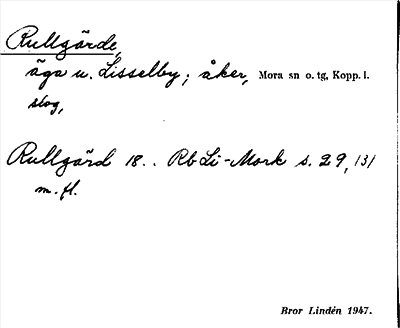 Rullgärde,
äga u. Lisselby; åker, Mora sn o. tg, Kopp. l.
skog,
Rullgärd 18.. Rb Li-Mork s. 29, 131
m. fl.
Bror Lindén 1947.